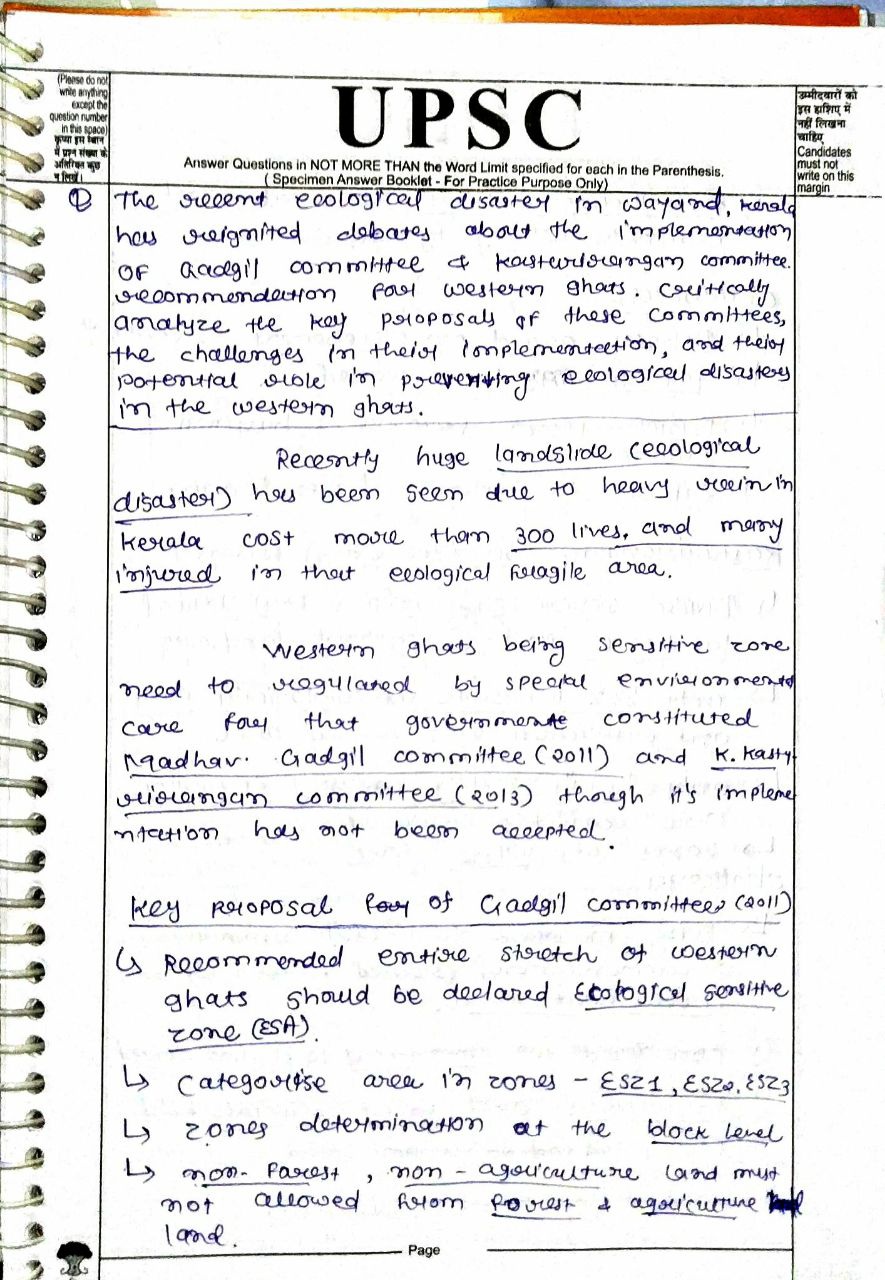 (Please do not
write anything
except the
question number
in this space)
कृपया इस स्थान
में प्रश्न संख्या के
अतिरिक्त कुछ
न लिखें।
UPSC
Answer Questions in NOT MORE THAN the Word Limit specified for each in the Parenthesis.
( Specimen Answer Booklet - For Practice Purpose Only)
उम्मीदवारों को
इस हाशिए में
नहीं लिखना
चाहिए
Candidates
must not
write on this
margin
The recent ecological disaster in Wayand, Kerala
has reignited debates about the implementation
OF Gadgil committee & Kasturirangan committee.
recommendation for western ghats. Critically
analyze the key proposals of these committees,
the challenges in their implementation, and their
potential role in preventing ecological disasters
in the western ghats.
Recently huge landslide (ecological
disaster) has been seen due to heavy rain in
Kerala cost more than 300 lives, and many
injured in that ecological fragile area.
Western ghats being sensitive zone
need to regulated by special environmental
care for that government constituted
Madhav. Gadgil committee (2011) and K. Kastu
rirangan committee (2013) though it's impleme
ntation has not been accepted.
Key proposal for of Gadgil committee, (2011)
↳ Recommended entire stretch of western
ghats should be declared Ecological sensitive
zone (ESA).
↳ Categorise area in zones - ESZ1, ESZ2, ESZ3
↳ zones determination at the block level
↳ non-forest, non-agriculture land must
not allowed from forest & agriculture
land.
Page